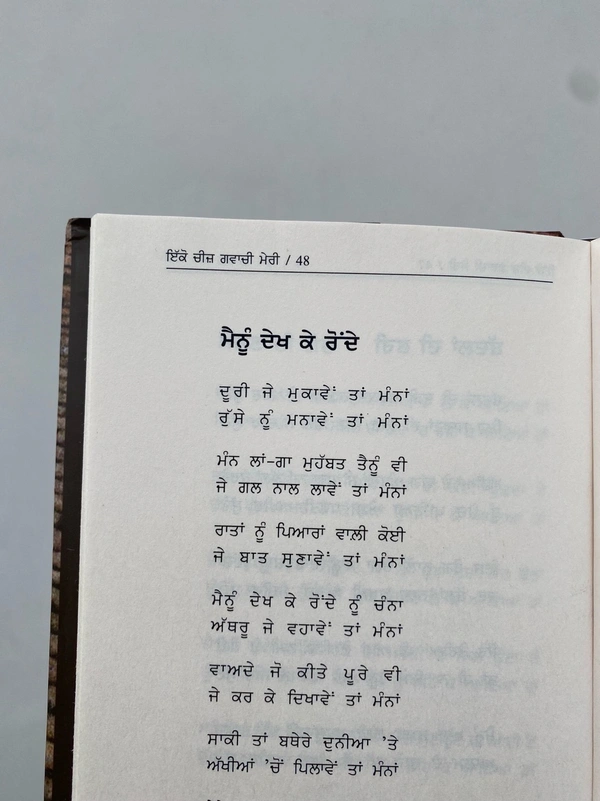 ਇੱਕੋ ਚੀਜ਼ ਗਵਾਚੀ ਮੇਰੀ / 48
ਮੈਨੂੰ ਦੇਖ ਕੇ ਰੋਂਦੇ
ਦੂਰੀ ਜੇ ਮੁਕਾਵੇਂ ਤਾਂ ਮੰਨਾਂ
ਰੁੱਸੇ ਨੂੰ ਮਨਾਵੇਂ ਤਾਂ ਮੰਨਾਂ
ਮੰਨ ਲਾਂ-ਗਾ ਮੁਹੱਬਤ ਤੈਨੂੰ ਵੀ
ਜੇ ਗਲ ਨਾਲ ਲਾਵੇਂ ਤਾਂ ਮੰਨਾਂ
ਰਾਤਾਂ ਨੂੰ ਪਿਆਰਾਂ ਵਾਲੀ ਕੋਈ
ਜੇ ਬਾਤ ਸੁਣਾਵੇਂ ਤਾਂ ਮੰਨਾਂ
ਮੈਨੂੰ ਦੇਖ ਕੇ ਰੋਂਦੇ ਨੂੰ ਚੰਨਾ
ਅੱਥਰੂ ਜੇ ਵਹਾਵੇਂ ਤਾਂ ਮੰਨਾਂ
ਵਾਅਦੇ ਜੋ ਕੀਤੇ ਪੂਰੇ ਵੀ
ਜੇ ਕਰ ਕੇ ਦਿਖਾਵੇਂ ਤਾਂ ਮੰਨਾਂ
ਸਾਕੀ ਤਾਂ ਬਥੇਰੇ ਦੁਨੀਆ 'ਤੇ
ਅੱਖੀਆਂ 'ਚੋਂ ਪਿਲਾਵੇਂ ਤਾਂ ਮੰਨਾਂ